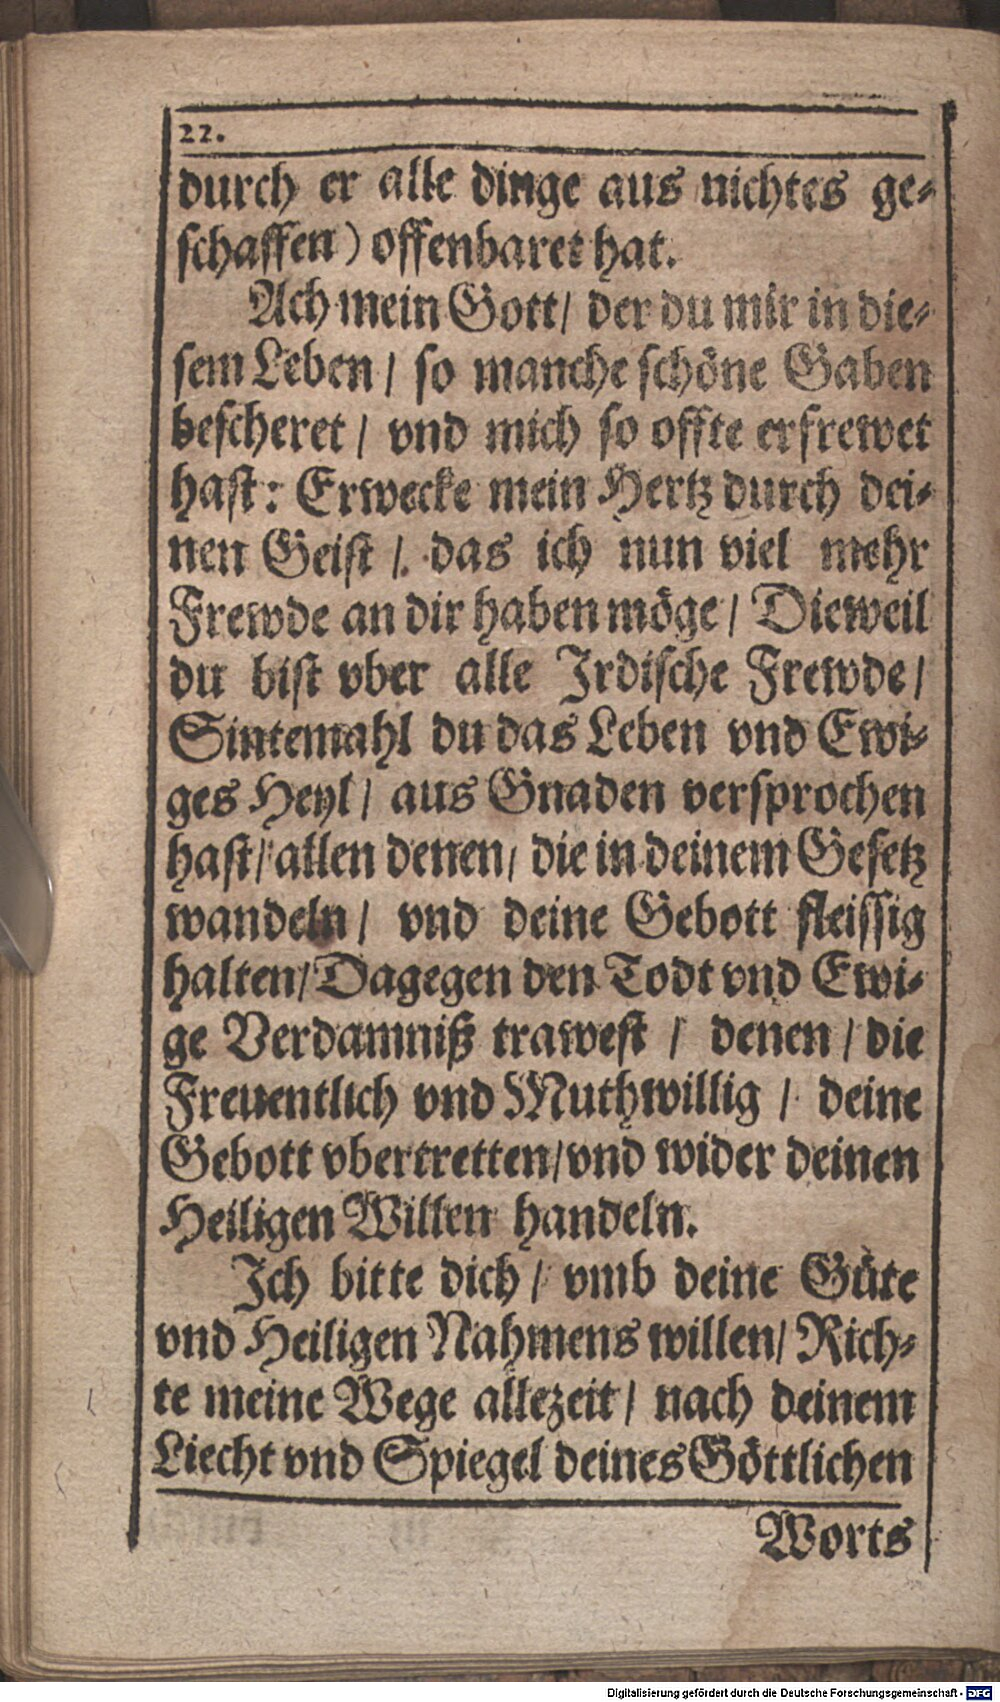 22.
durch er alle dinge aus nichtes ge-
schaffen) offenbaret hat.
Ach mein Gott/ der du mir in die-
sem Leben/ so manche schöne Gaben
bescheret/ vnd mich so offte erfrewet
hast: Erwecke mein Hertz durch dei-
nen Geist/. das ich nun viel mehr
Frewde an dir haben möge/ Dieweil
du bist vber alle Jrdische Frewde/
Sintemahl du das Leben vnd Ewi-
ges Heyl/ aus Gnaden versprochen
hast/ allen denen/ die in deinem Gesetz
wandeln/ vnd deine Gebott fleissig
halten/ Dagegen den Todt vnd Ewi-
ge Verdamniß trawest/ denen/ die
Freuentlich vnd Muthwillig/ deine
Gebott vbertretten/ vnd wider deinen
Heiligen Willen handeln.
Jch bitte dich/ vmb deine Güte
vnd Heiligen Nahmens willen/ Rich-
te meine Wege allezeit/ nach deinem
Liecht vnd Spiegel deines Göttlichen
Worts
Digitalisierung gefördert durch die Deutsche Forschungsgemeinschaft - DFG